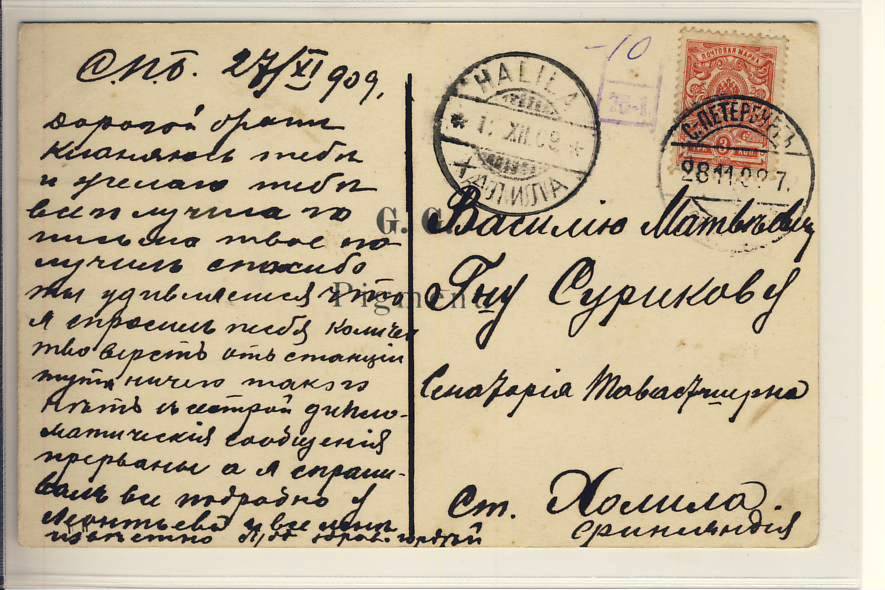 СПБ. 27/XI 909,
дорогой братъ
кланяюсь тебѣ
и желаю тебѣ
письма твое по
лучилъ спасибо
ты удивляешся что
я спросилъ тебя количес
тво верстъ отъ станціи
тутъ ничего такого
нѣтъ съ сестрой дипло-
матическія сообщенія
прерваны а я спраши-
валъ все подробно у
Леонтьева и все мнѣ
извѣстно
HALILA
1. XII.09
ХАЛИЛА
-10
С.ПЕТЕРБУРГЪ
28.11.09.7.
ПОЧТОВАЯ МАРКА
3
G. G.
Pigment
Василію Матвѣевичу
Гну Сурикову
Сенаторія Тавастшерна
ст. Холила
Финляндія